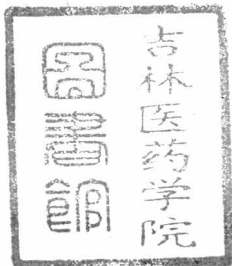 吉林医药学院
図書館